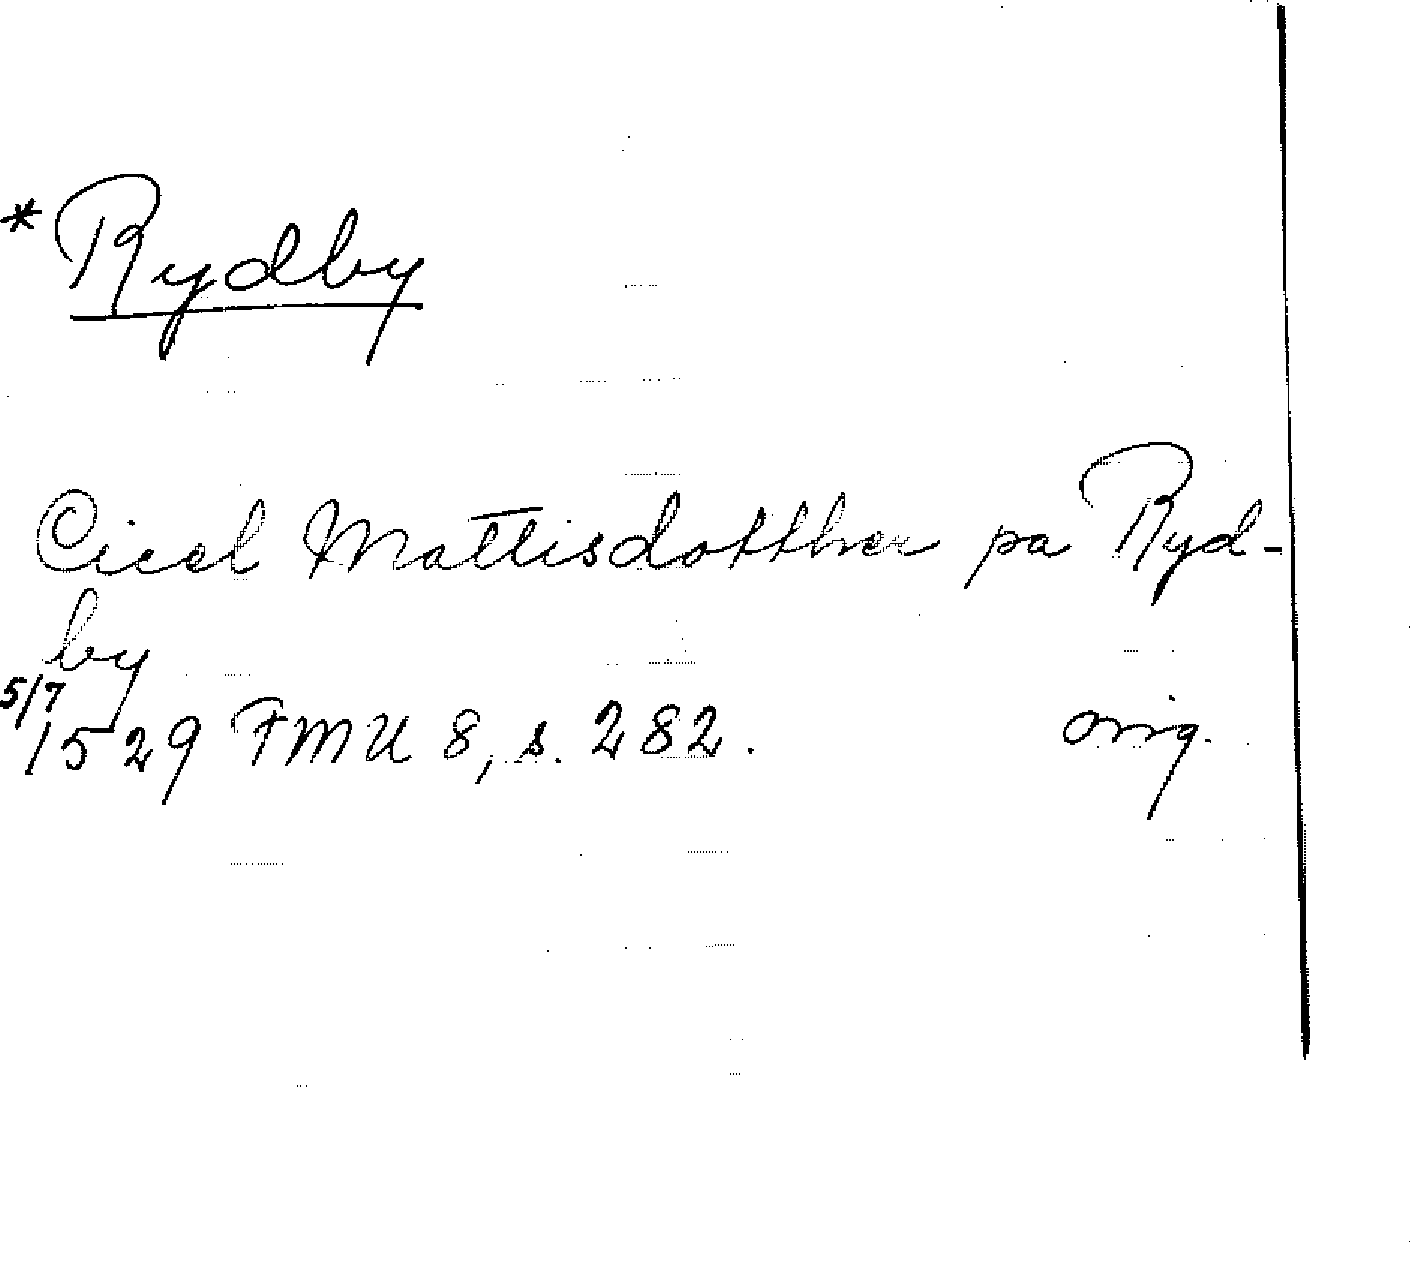 * Rydby
Cicel Mattisdotther pa Ryd-
by
5/7 1529 FMU 8, s. 282. orig.